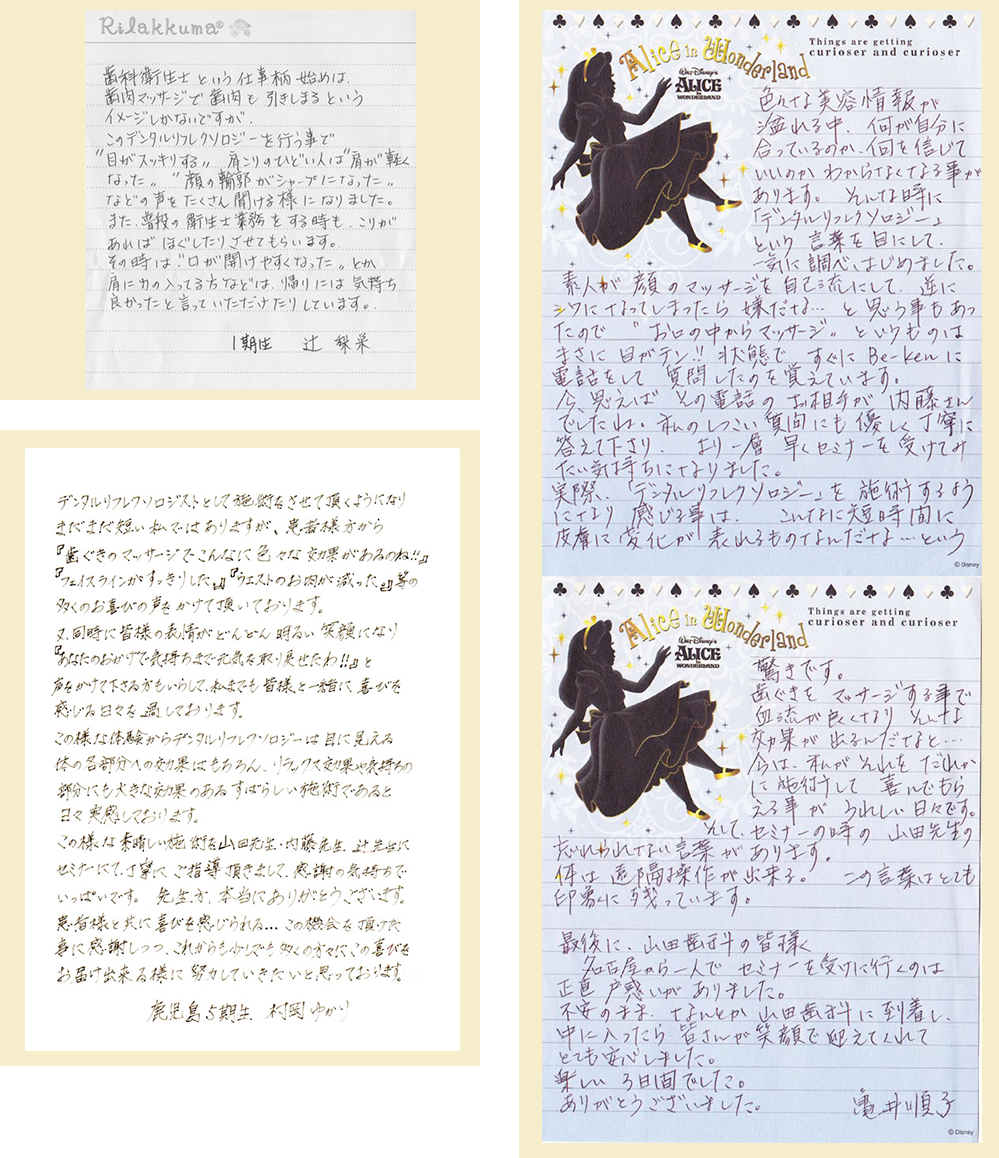 Rilakkuma®
歯科衛生士という仕事柄 始めは、
歯肉マッサージで歯肉を引きしまるという
イメージしかないですが、
このデンタルリフレクソロジーを行う事で
"目がスッキリする" 肩こりのひどい人は"肩が軽く
なった" "顔の輪郭がシャープになった"
などの声をたくさん聞ける様になりました。
また、普段の衛生士業務をする時も、こりが
あれば ほぐしたりさせてもらいます。
その時は"口が開けやすくなった"とか
肩に力の入ってる方などは、帰りには気持ち
良かったと言っていただけたりしています。
1期生 辻 梨栄
デンタルリフレクソロジストとして施術をさせて頂くようになり
まだまだ短い私ではありますが、患者様方から
『歯ぐきのマッサージでこんなに色々な効果があるのね!!』
『フェイスラインがすっきりした』『ウエストのお肉が減った』等の
多くのお喜びの声をかけて頂いております。
又、同時に皆様の表情がどんどん明るい笑顔になり
『あなたのおかげで気持ちまで元気を取り戻せたわ!!』と
声をかけて下さる方もいらして、私までも皆様と一緒に喜びを
感じる日々を過しております。
この様な体験からデンタルリフレクソロジーは目に見える
体の各部分への効果はもちろん、リラックス効果や気持ちの
部分にも大きな効果のあるすばらしい施術であると
日々実感しております。
この様な素晴しい施術を山田先生・内藤先生、辻先生に
セミナーにて、丁寧にご指導頂きまして、感謝の気持ちで
いっぱいです。 先生方、本当にありがとうございます。
患者様と共に喜びを感じられる…この機会を頂けた
事に感謝しつつ、これからも少しでも多くの方々にこの喜びを
お届け出来る様に努力していきたいと思っております。
鹿児島5期生 村岡ゆかり
Things are getting
curioser and curioser
Alice in Wonderland
WALT DISNEY'S
ALICE
IN WONDERLAND
色々な美容情報が
溢れる中、何が自分に
合っているのか、何を信じて
いいのか わからなくなる事が
あります。 そんな時に
「デンタルリフレクソロジー」
という 言葉を目にして、
一気に調べ、はじめました。
素人が顔のマッサージを自己流にして、逆に
シワになってしまったら 嫌だな… と思う事もあっ
たので "お口の中からマッサージ" というものは
まさに 目がテン!! 状態で すぐに Be-kenに
電話をして 質問したのを覚えています。
今、思えば その電話の お相手が 内藤さん
でしたね。私のしつこい質問にも優しく丁寧に
答えて下さり、 より一層 早くセミナーを受けてみ
たい気持ちになりました。
実際、「デンタルリフレクソロジー」を 施術するよう
になり 感じる事は、 こんなに短時間に
皮膚に変化が 表れるものなんだな…という
© Disney
Things are getting
curioser and curioser
Alice in Wonderland
WALT DISNEY'S
ALICE
IN WONDERLAND
驚きです。
歯ぐきを マッサージする事で
血流が良くなり そんな
効果が 出るんだなと…
今は、私が それを だれか
に施術して 喜んでもら
える事が うれしい日々です。
そして、セミナーの時の 山田先生の
忘れられない言葉が あります。
体は 遠隔操作が出来る。 この言葉はとても
印象に残っています。
最後に、山田歯科の皆様へ
名古屋から一人で セミナーを受けに行くのは
正直 戸惑いが ありました。
不安のまま、なんとか 山田歯科に到着し、
中に入ったら 皆さんが笑顔で迎えてくれて
とても安心しました。
楽しい3日間でした。
ありがとうございました。 亀井順子
© Disney